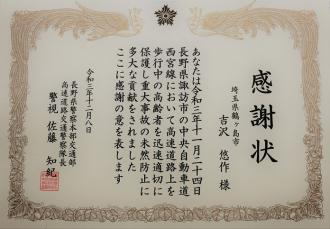 感謝状
埼玉県鶴ヶ島市
吉沢 悠作 様
あなたは令和三年十一月二十四日
長野県諏訪市の中央自動車道
西宮線において高速道路上を
歩行中の高齢者を迅速適切に
保護し重大事故の未然防止に
多大な貢献をされました
ここに感謝の意を表します
令和三年十二月八日
長野県警察本部交通部
高速道路交通警察隊長
警視 佐藤 知紀